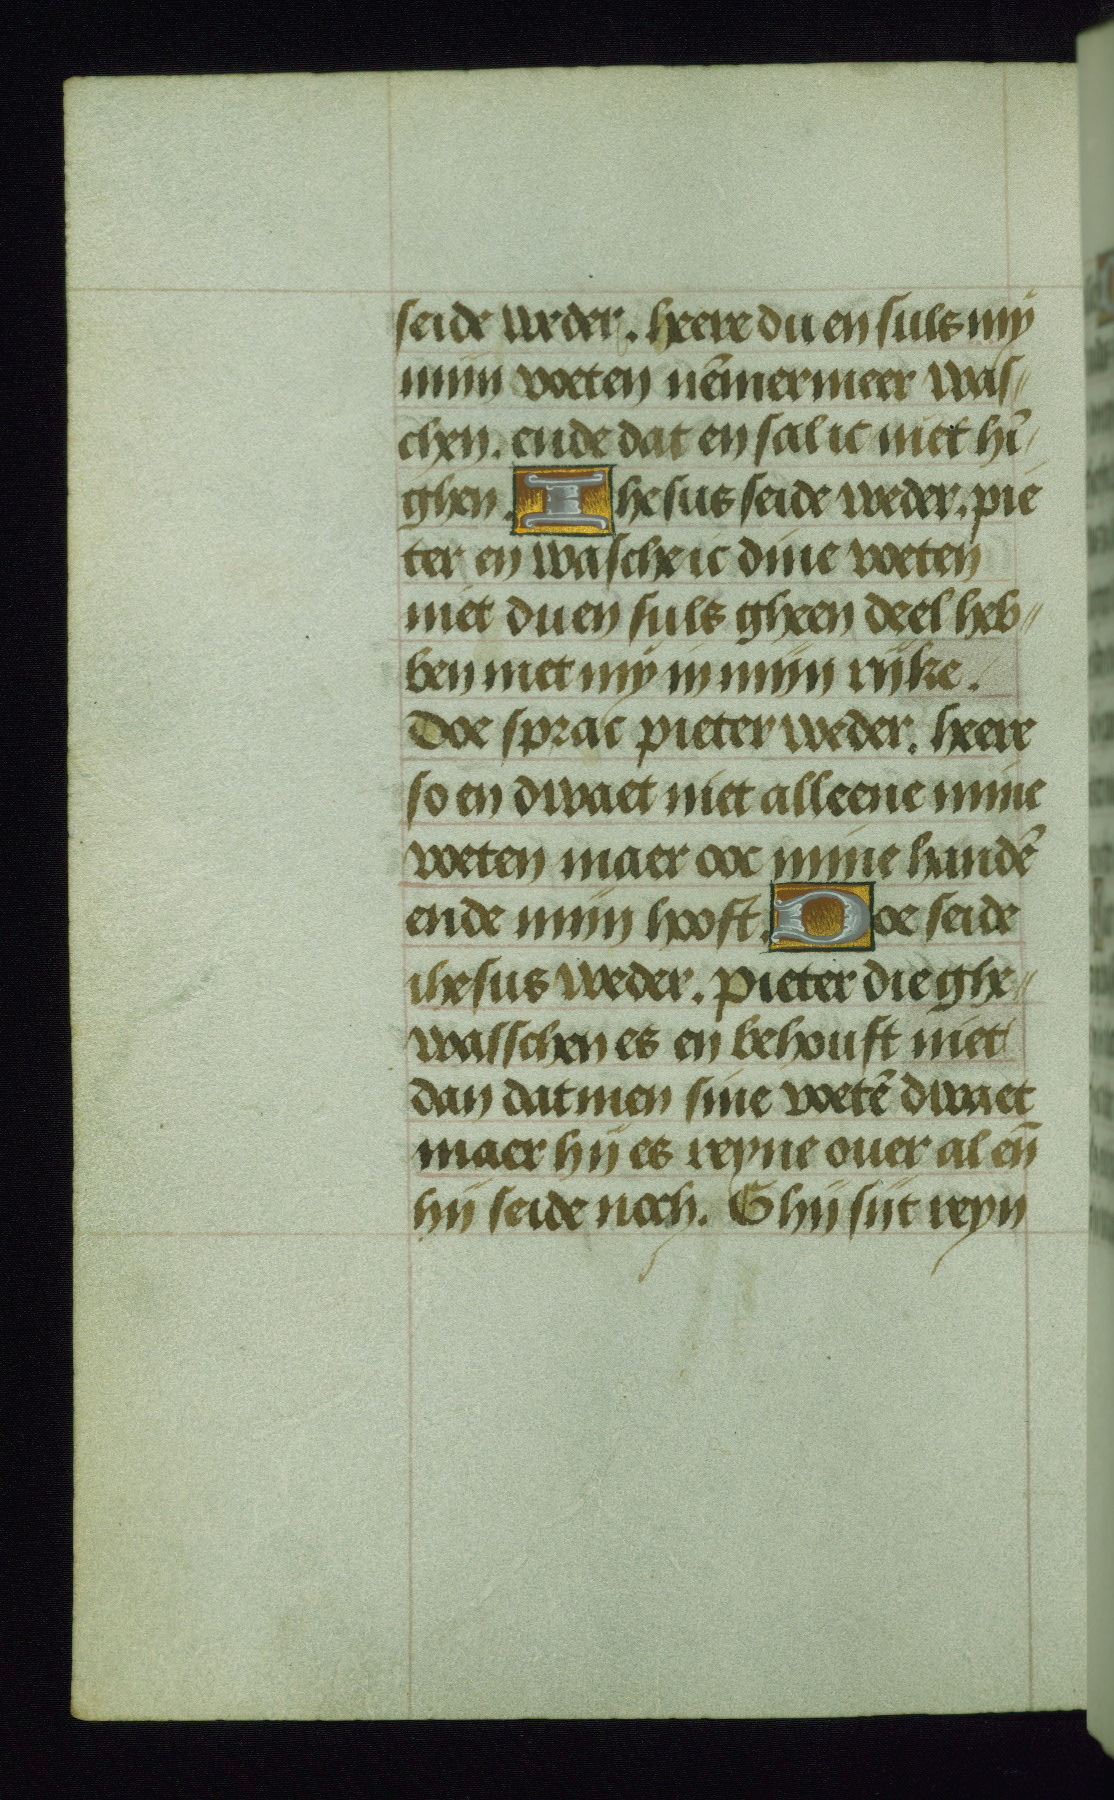 seide weder. heere du en suls my
mijn voeten nēmermeer was-
chen. ende dat en sal ic niet hī-
ghen. Ihesus seide weder. pie
ter en wasche ic dine voeten
niet du en suls gheen deel heb-
ben met my in mijn rijke.
Doe sprac pieter weder. heere
so en dwaet niet alleene mine
voeten maer ooc mine handē
ende mijn hooft. Doe seide
ihesus weder. pieter die ghe-
wasschen es en behouft niet
dan datmen sine voetē dwaet
maer hij es reyne ouer al eñ
hij seide noch. Ghij sijt reyn